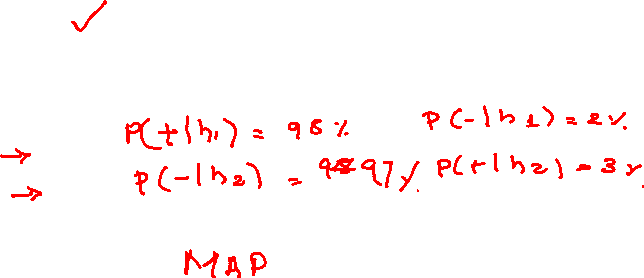 P(+|h1) = 98% P(-|h1) = 2%
P(-|h2) = 97% P(+|h2) = 3%
MAP